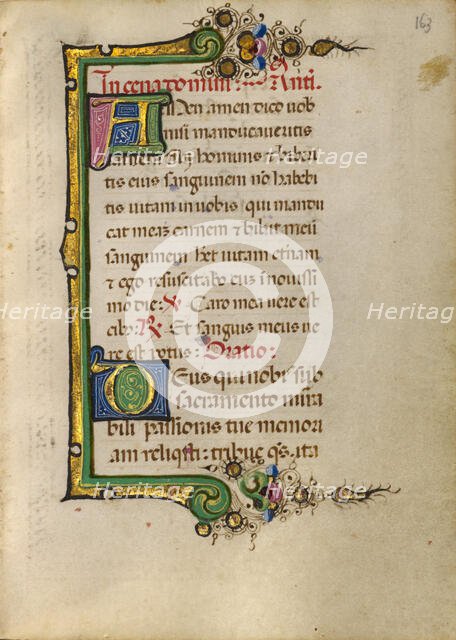 163
In cena domini: Anti.
Amen amen dico vob
nisi manducaveritis
carnem filii hominis & biberi
tis eius sanguinem nō habebi
tis vitam in vobis qui mandu
cat meaz carnem & bibit meū
sanguinem het vitam etnam
& ego resuscitabo eus i novissi
mo die: V. Caro mea vere est
cib9 R. Et sanguis meus ve
re est potus: Oratio:
Deus qui nobis sub
sacramento mira
bili passionis tue memori
am reliqsti: tribue qs. ita
Heritage
Heritage
Heritage
Heritage
Heritage
Heritage
Heritage
Heritage